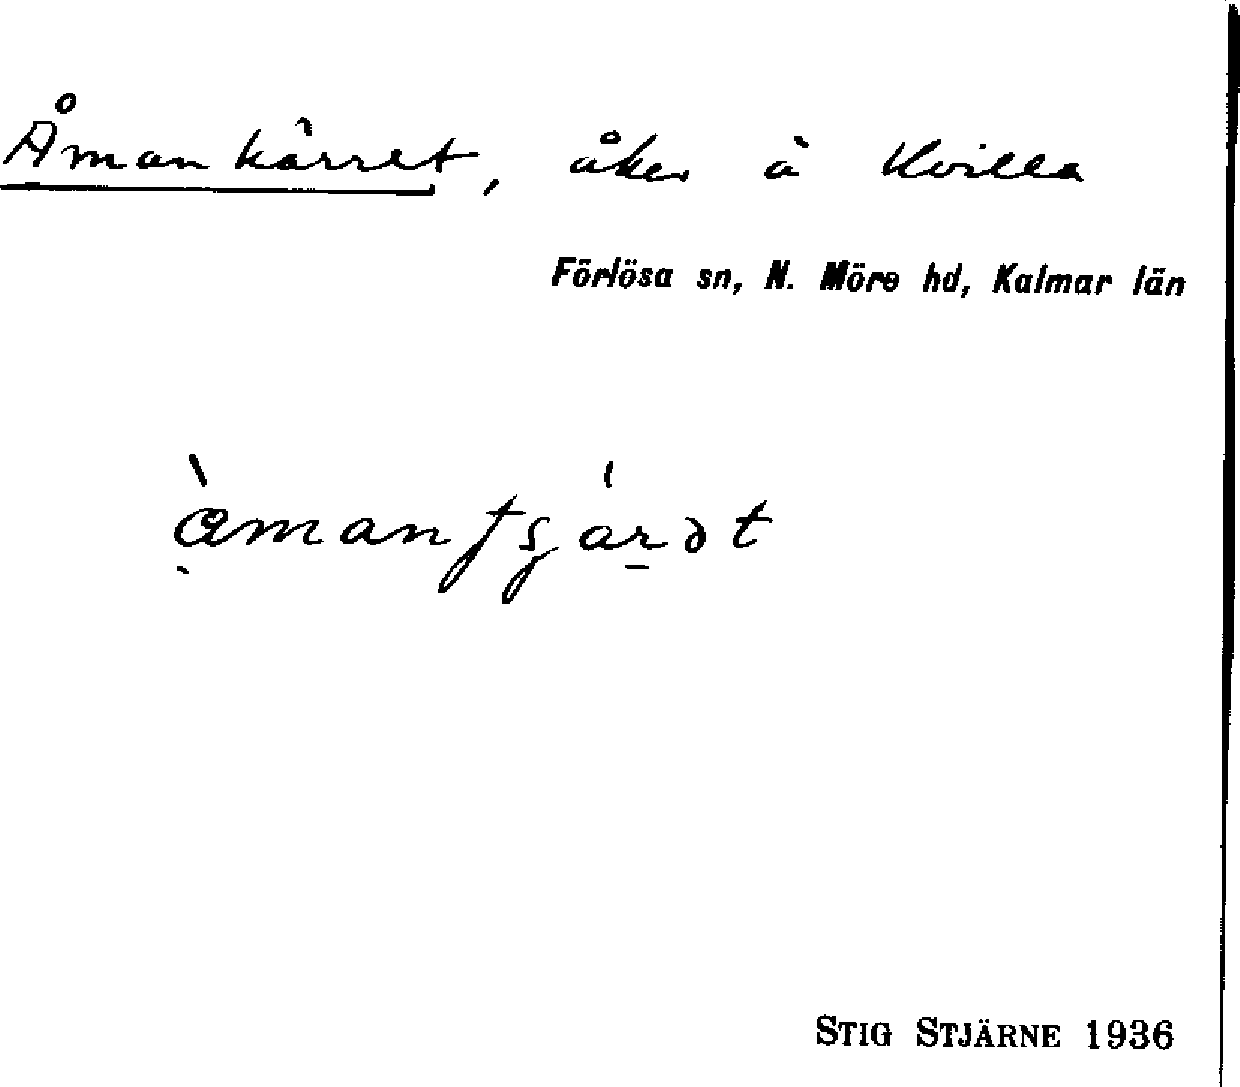 Åmankärret, åker å Kvilla
Förlösa sn, N. Möre hd, Kalmar län
STIG STJÄRNE 1936